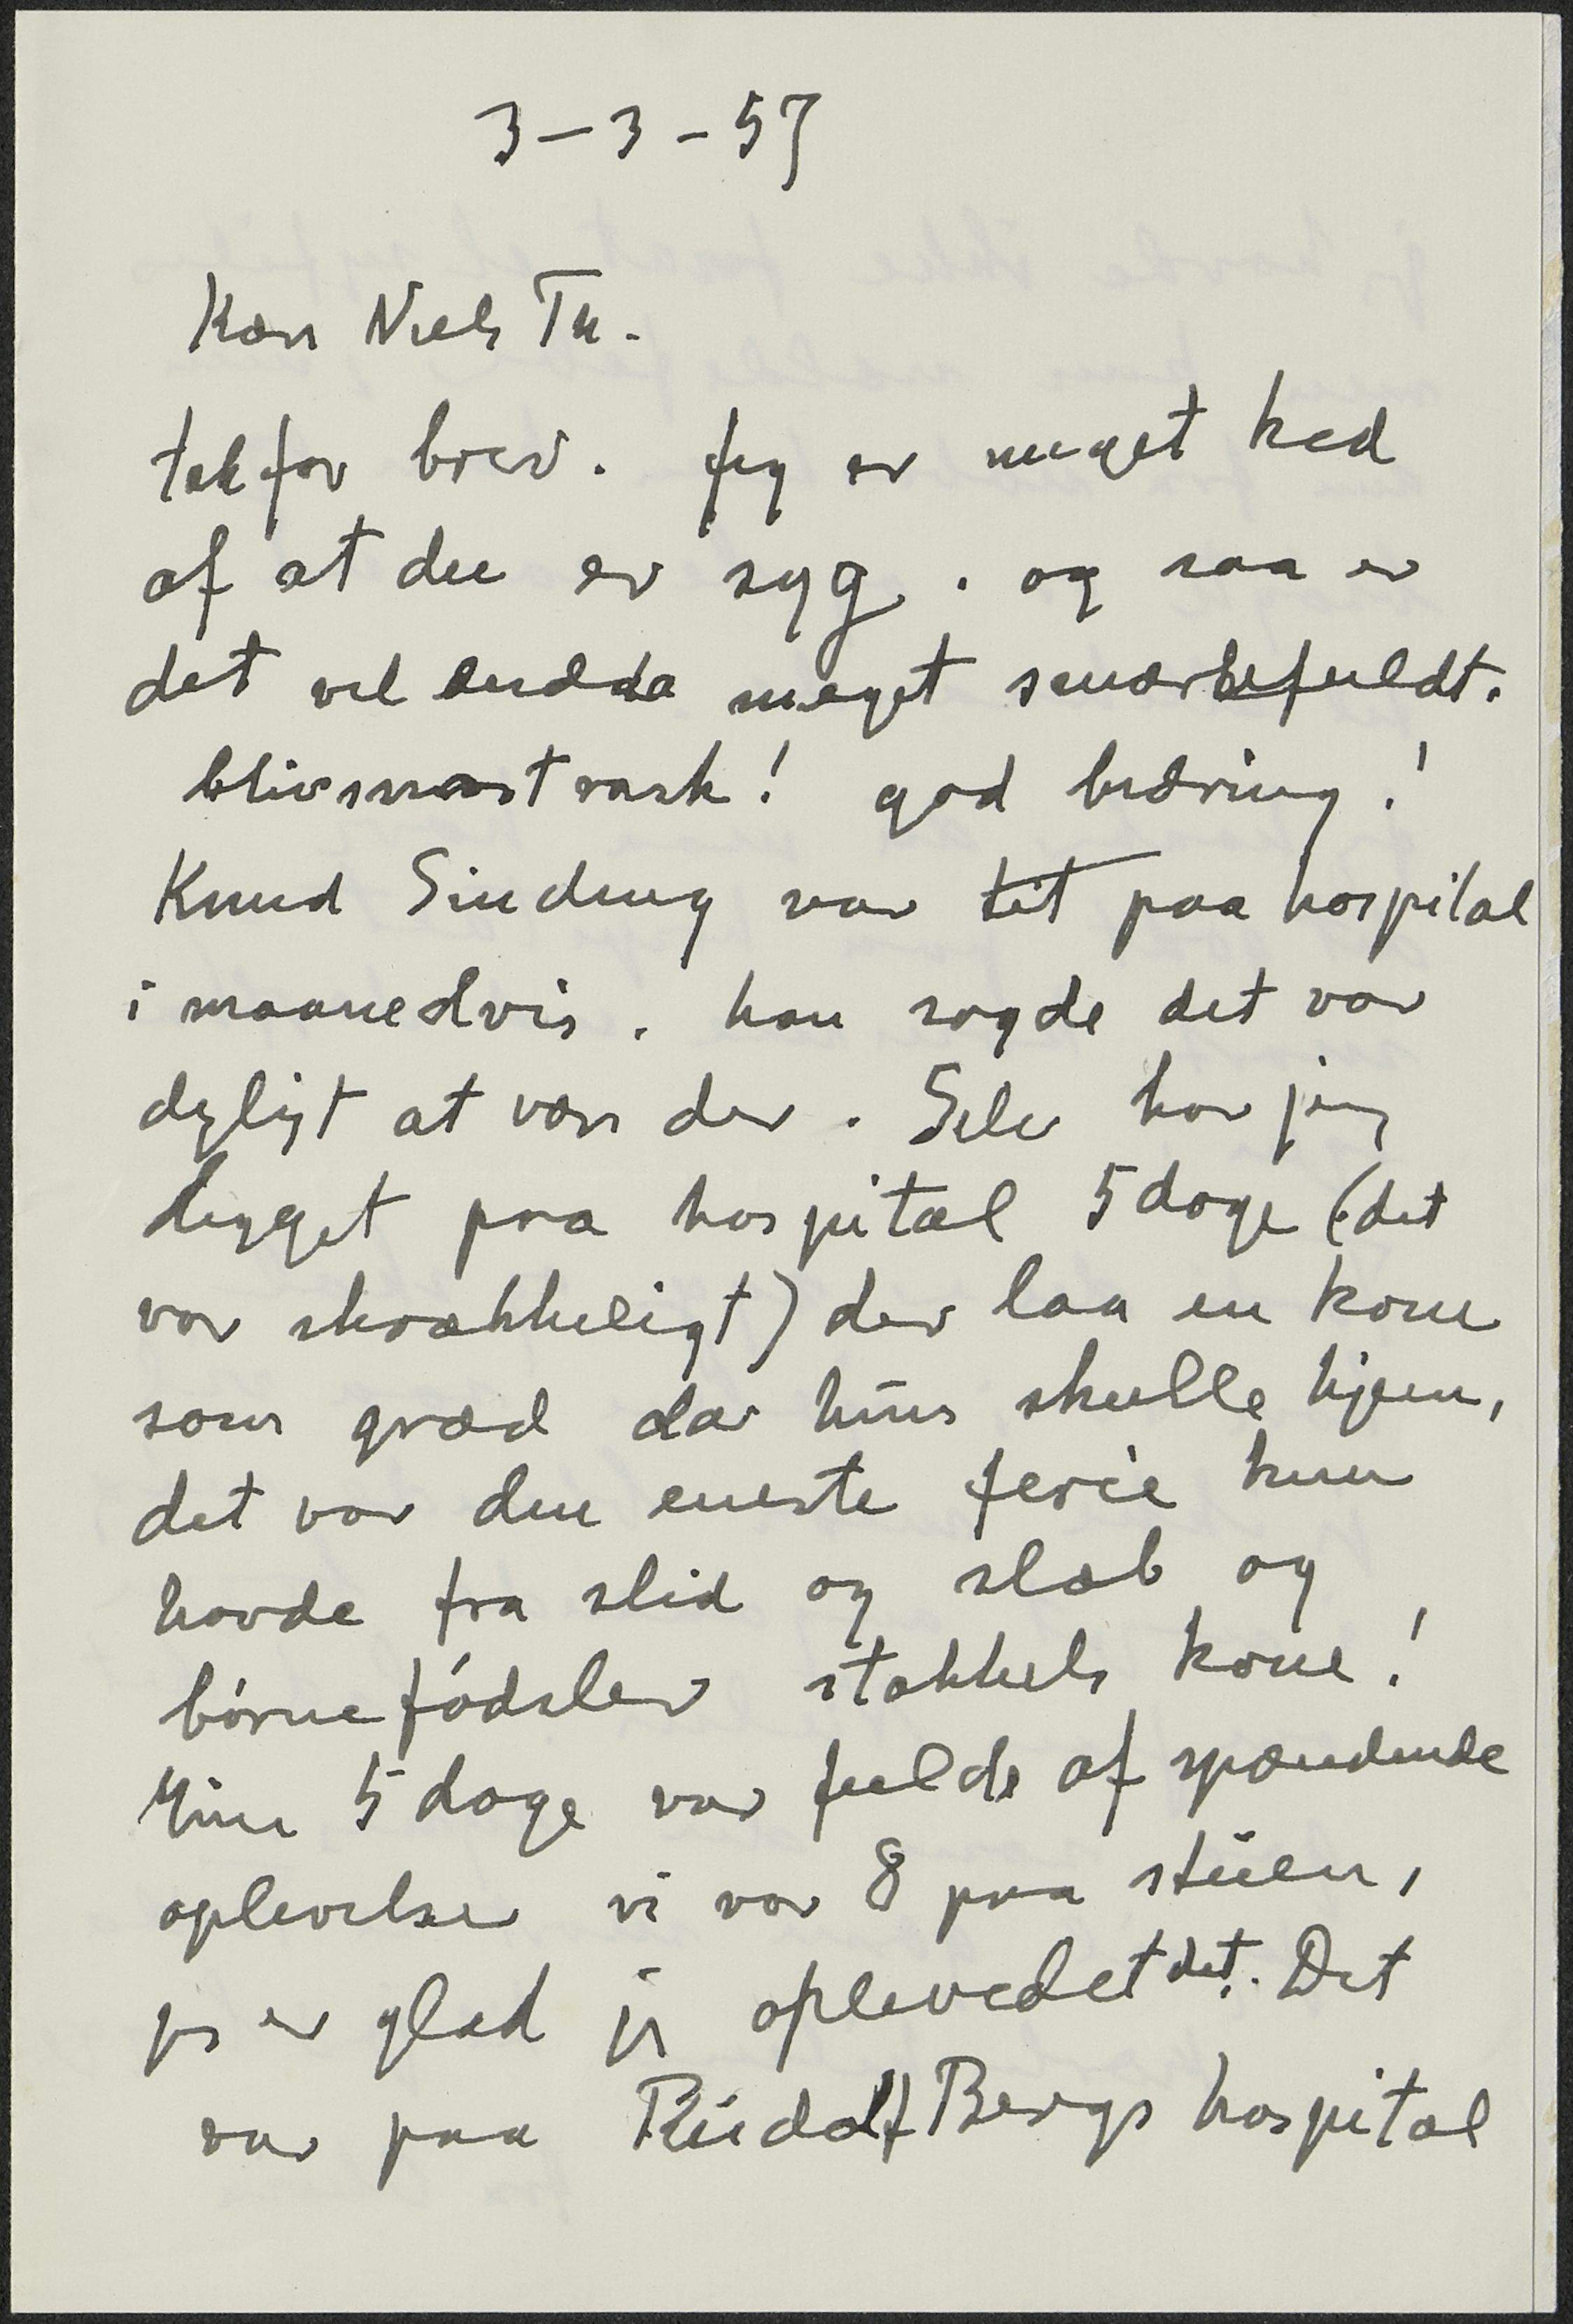 3–3–57
Kære Niels Th.
tak for brev. Jeg er meget ked
af at du er syg. og saa er
det vel endda meget smertefuldt.
bliv snart rask! god bedring!
Knud Sinding var tit paa hospital
i maanedvis. han sagde det var
dejligt at være der. Selv har jeg
ligget paa hospital 5 dage (det
var skrækkeligt) der laa en kone
som græd da hun skulle hjem,
det var den eneste ferie hun
havde fra slid og slæb og
børnefødsler stakkels kone!
Mine 5 dage var fulde af spændende
oplevelser vi var 8 paa stuen,
jeg er glad jeg oplevedet det. Det
var paa Rudolf Bergs hospital